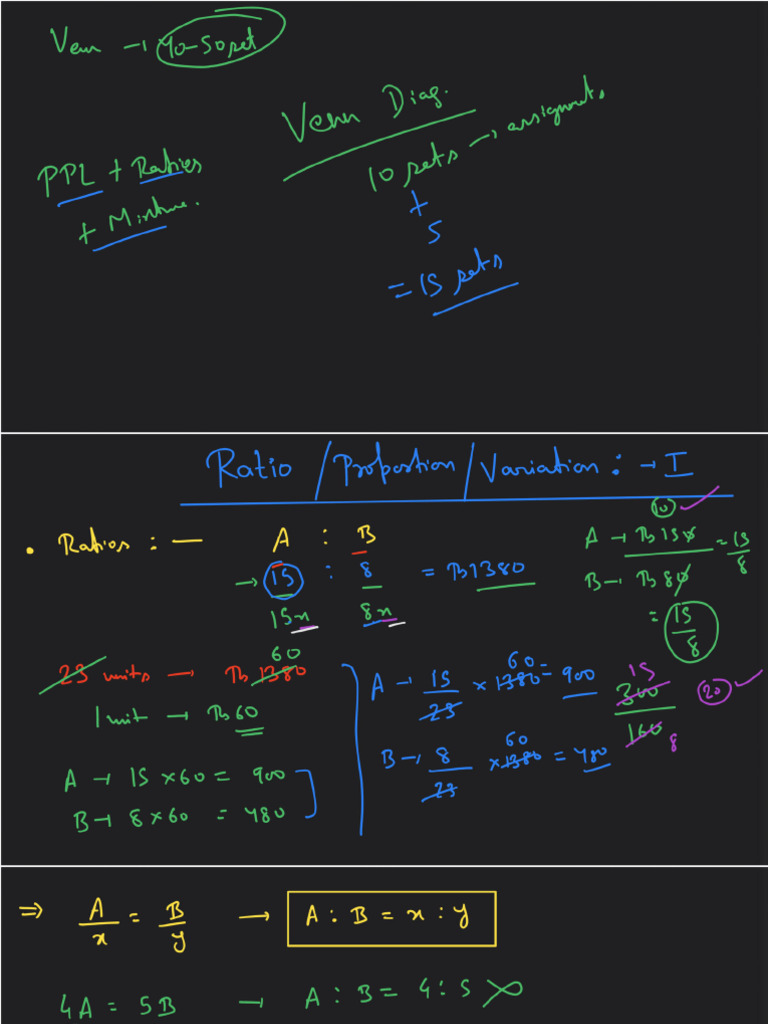 Venn → 40-50 set
Venn Diag.
10 sets → assignments
+
5
= 15 sets
PPL + Ratios
+ Mixture.
Ratio / Proportion / Variation : → I
• Ratios : — A : B
→ 15 : 8 = Rs 1380
15x 8x
60
23 units → Rs 1380
1 unit → Rs 60
A → 15 × 60 = 900
B → 8 × 60 = 480
A → 15/23 × 1380 = 900
60
B → 8/23 × 1380 = 480
60
10 ✓
A → Rs 150
B → Rs 80
= 15/8
= 15/8
15
300
160
8
20 ✓
⇒ A/x = B/y → A : B = x : y
4A = 5B → A : B = 4 : 5 ✗